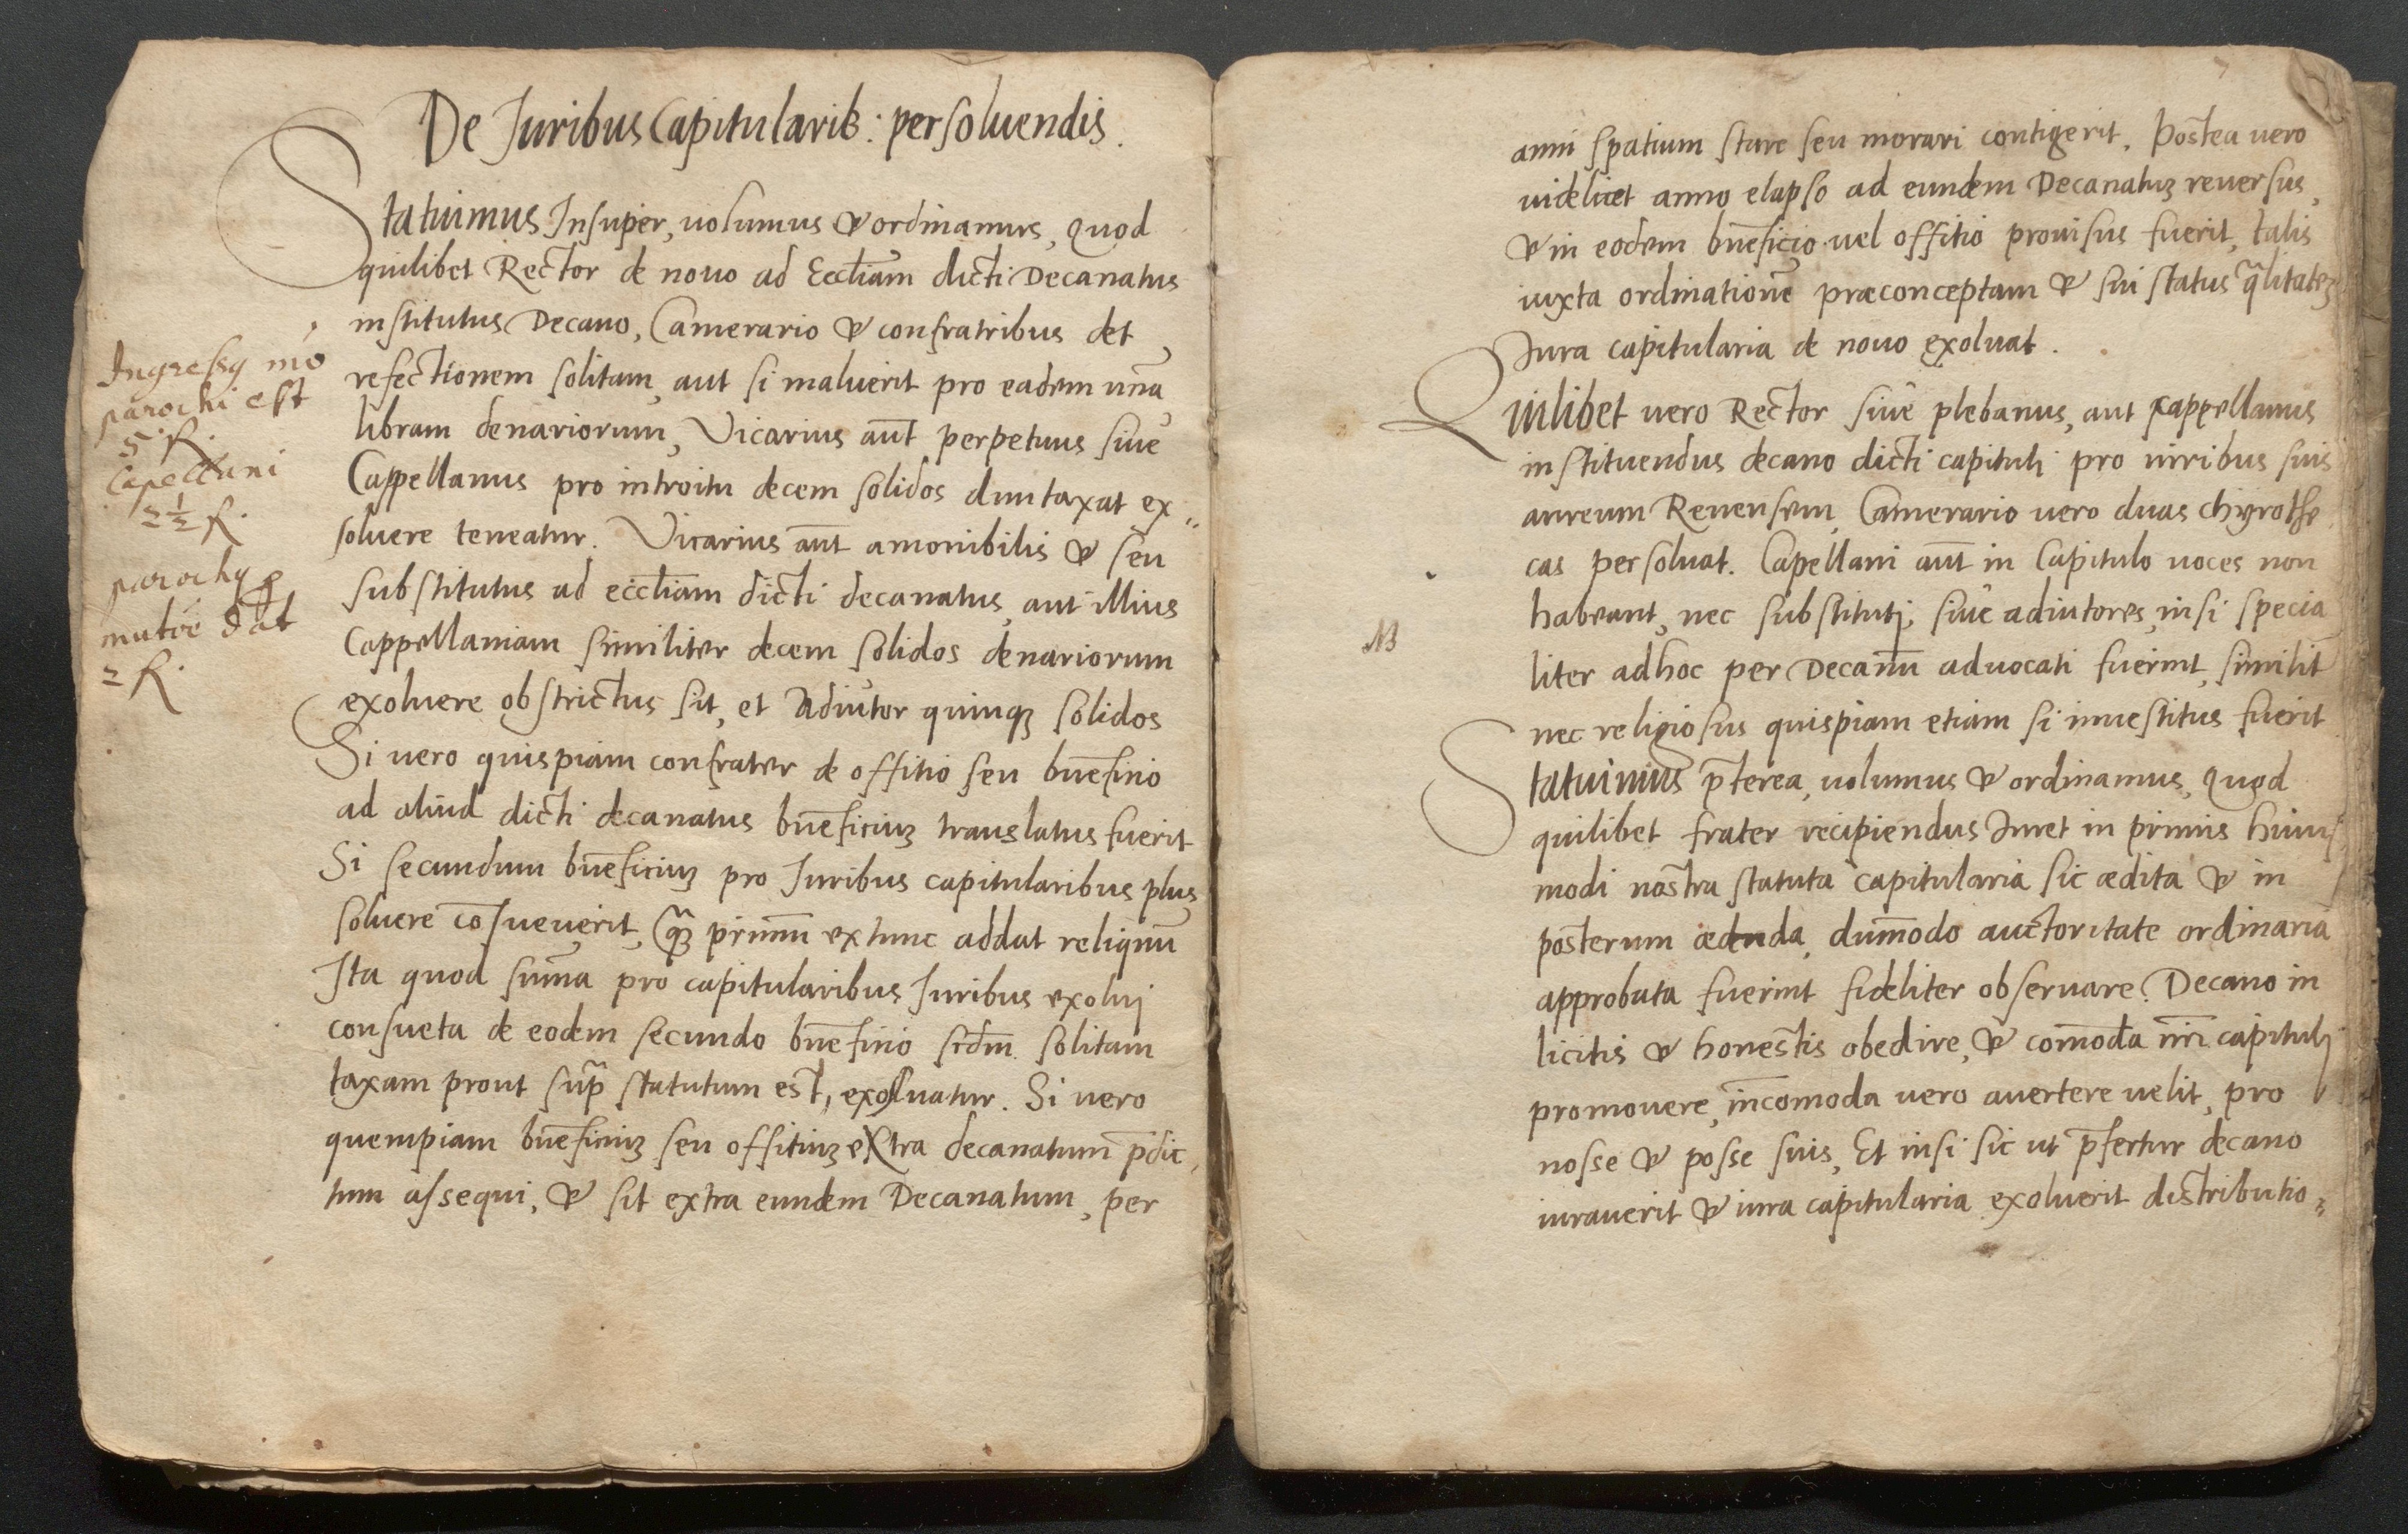 De Juribus Capitularib: persoluendis.
Statuimus Insuper, uolumus & ordinamus, Quod
quilibet Rector de nouo ad Eccl̄iam dicti Decanatus
institutus Decano, Camerario & confratribus det
refectionem solitam, aut si maluerit pro eadem unā
libram denariorum, Vicarius aūt perpetuus siue
Cappellanus pro introitu decem solidos duntaxat ex„
soluere teneatur. Vicarius aūt amouibilis & seu
substitutus ad eccl̄iam dicti decanatus, aut illius
Cappellaniam similiter decem solidos denariorum
exoluere obstrictus sit, et Adiutor quinqȝ solidos
Si uero quispiam confrater de offitio seu bn̄eficio
ad aliud dicti decanatus bn̄eficiuȝ translatus fuerit
Si secundum bn̄eficiuȝ pro Juribus capitularibus plus
soluere cōsueuerit, qᷓȝ primum extunc addat reliquū
Ita quod sum̄a pro capitularibus Juribus exolui
consueta de eodem secundo bn̄eficio scd̄m solitam
taxam prout sup̄ statutum est, exoluatur. Si uero
quempiam bn̄eficiuȝ seu offitiuȝ extra decanatum p̄dic„
tum assequi, & sit extra eundem Decanatum, per
Ingressȝ mō
parochi est
5. R.
Capellani
2½ R.
parochȝ p
mutōe dat
2 R.
anni spatium stare seu morari contigerit. Postea uero
uidelicet anno elapso ad eundem Decanatuȝ reuersus,
& in eodem bn̄eficio uel offitio prouisus fuerit, talis
iuxta ordinationē praeconceptam & sui status qᷓlitateȝ
Jura capitularia de nouo exoluat.
Quilibet uero Rector siue plebanus, aut cappellanus
instituendus decano dicti capituli pro iuribus suis
aureum Renensem, Camerario uero duas chyrothe
cas persoluat. Capellani aūt in Capitulo uoces non
habeant, nec substituti, siue adiutores, nisi specia
liter adhoc per Decanū aduocati fuerint, similit̄
nec religiosus quispiam etiam si inuestitus fuerit
NB
Statuimus p̄terea, uolumus & ordinamus, Quod
quilibet frater recipiendus Juret in primis huius
modi nostra statuta capitularia sic aedita & in
posterum aedenda, dum̄odo auctoritate ordinaria
approbata fuerint fideliter obseruare. Decano in
licitis & honestis obedire, & com̄oda nr̄i capituli
promouere, incom̄oda uero auertere uelit, pro
nosse & posse suis, Et nisi sic ut p̄fertur decano
iurauerit & iura capitularia exoluerit distributio„